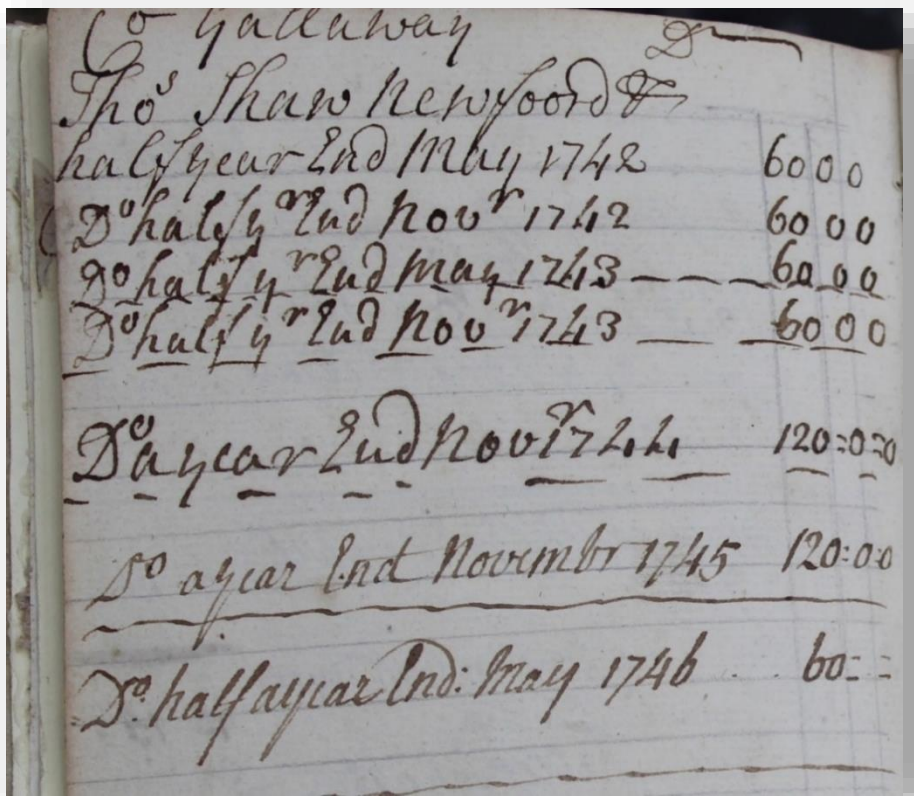 Co Gallaway Dr
Thos Shaw Newfoord Dr
half year End May 1742 60 0 0
Do half yr End Novr 1742 60 0 0
Do half yr End May 1743 60 0 0
Do half yr End Novr 1743 60 0 0
Do a year End Novr 1744 120:0:0
Do a year End Novembr 1745 120:0:0
Do. half a year End: May 1746 60: :